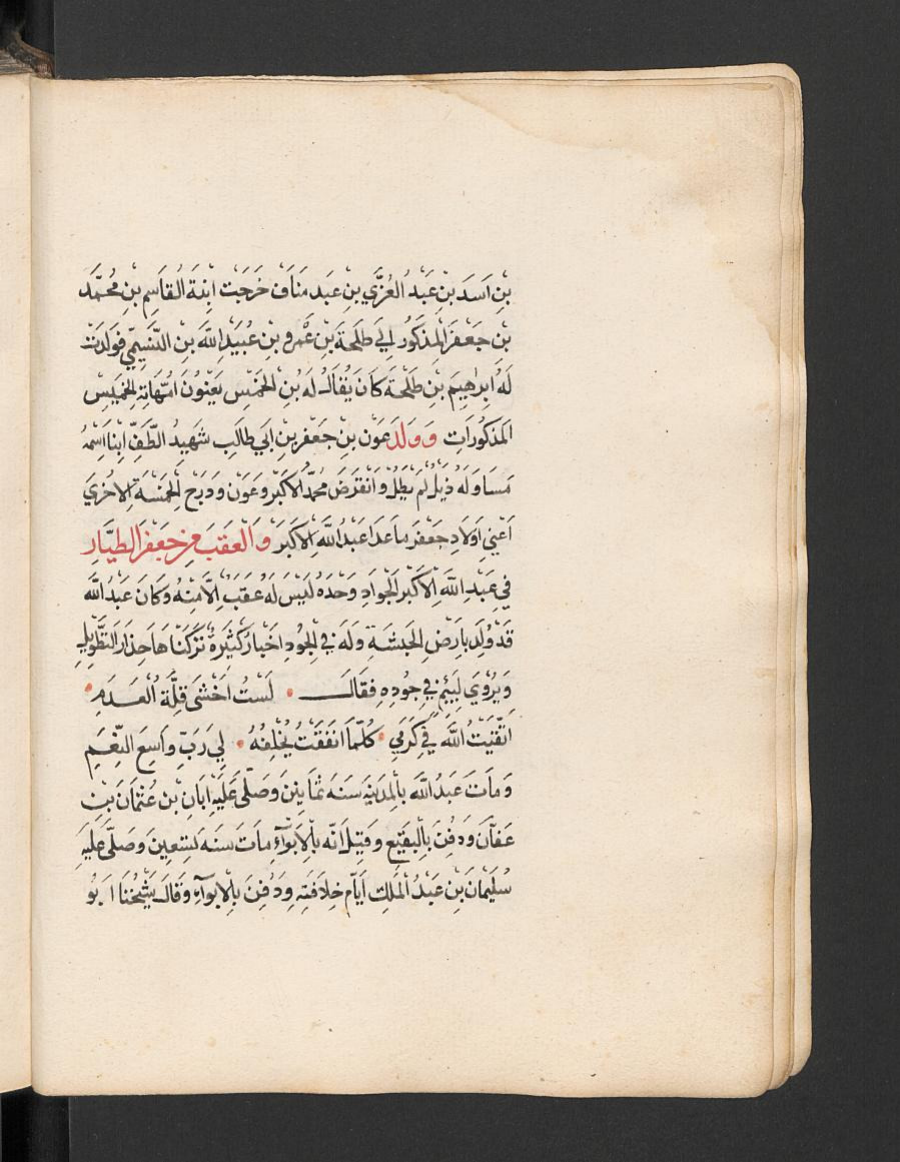 بن اسد بن عبد العزي بن عبد مناف خرجت ابنة القاسم بن محمد
بن جعفر المذكور الي طلحة بن عمرو بن عبيد الله بن التيمي فولدت
له ابرهيم بن طلحة كان يقال له بن الخمس يعنون امهاته الخميس
المذكورات وولد عون بن جعفر بن ابي طالب شهيد الطف ابنا اسمه
مساور له ذيل لم يطل وانقرض محمد الاكبر وعون ودرج الخمسة الاخري
اعني اولاد جعفر ما عدا عبد الله الاكبر والعقب من جعفر الطيار
في عبد الله الاكبر الجواد وحده ليس له عقب الا منه وكان عبد الله
قد ولد بارض الحبشة وله في الجود اخبار كثيرة تركناها حذار التطويل
ويروي ليم في جوده فقال لست اخشى قلة العدم
اتقيت الله في كرمي كلما انفقت يخلفه لي رب واسع النعم
ومات عبد الله بالمدينة سنة ثمانين وصلى عليه ابان بن عثمان بن
عفان ودفن بالبقيع وقيل انه بالابواء مات سنه تسعين وصلى عليه
سليمان بن عبد الملك ايام خلافته ودفن بالابواء وقال شيخنا ابو